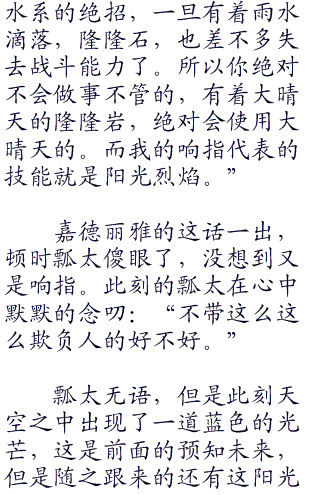 水系的绝招，一旦有着雨水
滴落，隆隆石，也差不多失
去战斗能力了。所以你绝对
不会做事不管的，有着大晴
天的隆隆岩，绝对会使用大
晴天的。而我的响指代表的
技能就是阳光烈焰。”
嘉德丽雅的这话一出，
顿时瓢太傻眼了，没想到又
是响指。此刻的瓢太在心中
默默的念叨：“不带这么这
么欺负人的好不好。”
瓢太无语，但是此刻天
空之中出现了一道蓝色的光
芒，这是前面的预知未来，
但是随之跟来的还有这阳光